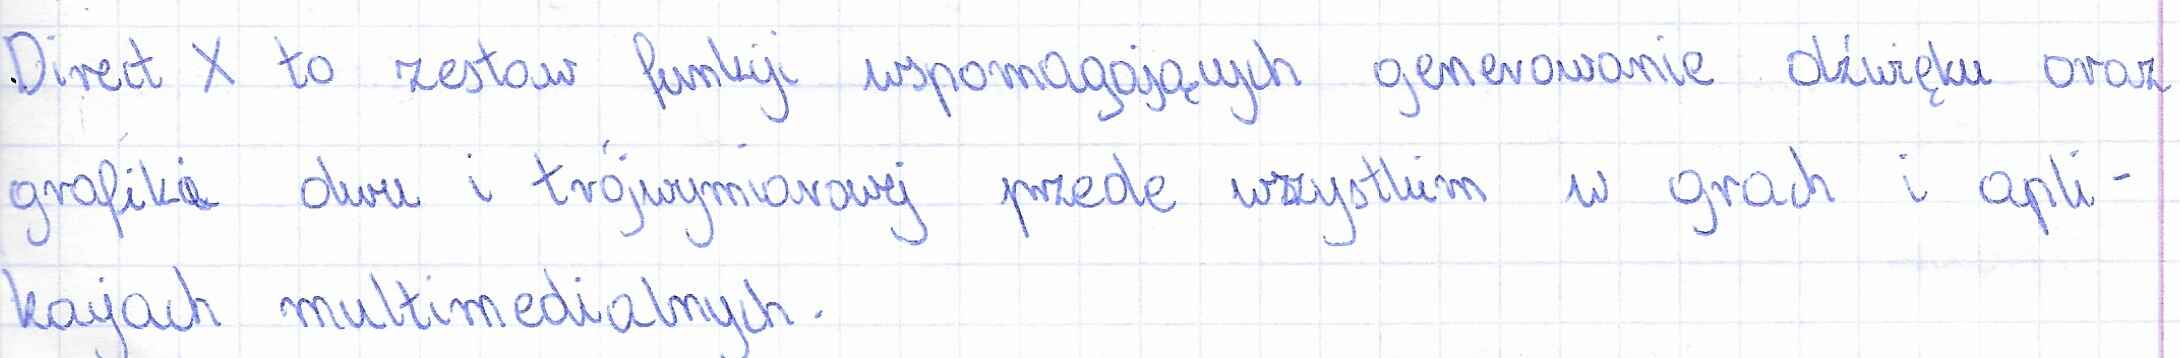 Direct X to zestaw funkcji wspomagających generowanie dźwięku oraz
grafiki dwu i trójwymiarowej przede wszystkim w grach i apli-
kacjach multimedialnych.